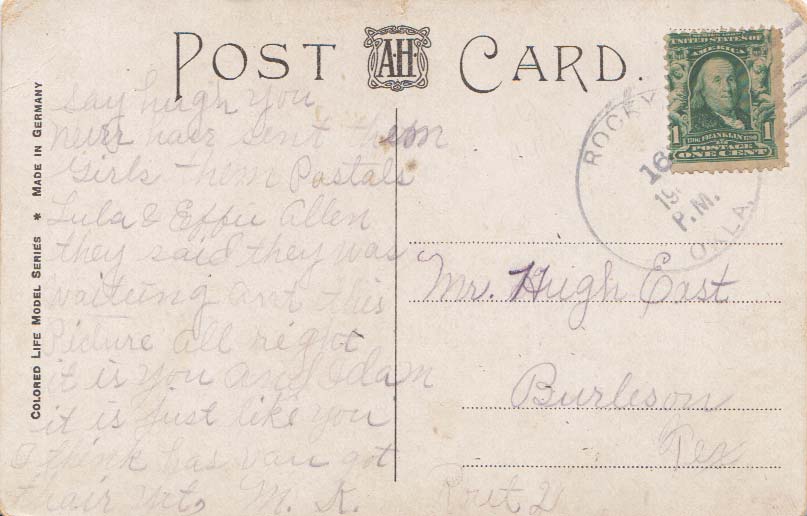 POST A.H. CARD.
COLORED LIFE MODEL SERIES * MADE IN GERMANY
UNITED STATES OF
AMERICA
1 FRANKLIN 1
POSTAGE
ONE CENT
ROCKY
16
19
P.M.
OKLA.
Say hugh you
never have sent them
Girls them Postals
Lula & Effie Allen
they said they was
waiteing ant this
Picture all right
it is you and Idam
it is just like you
I think has you got
hair yet, M. K.
Mr. Hugh East
Burleson
Tex
Rout 2